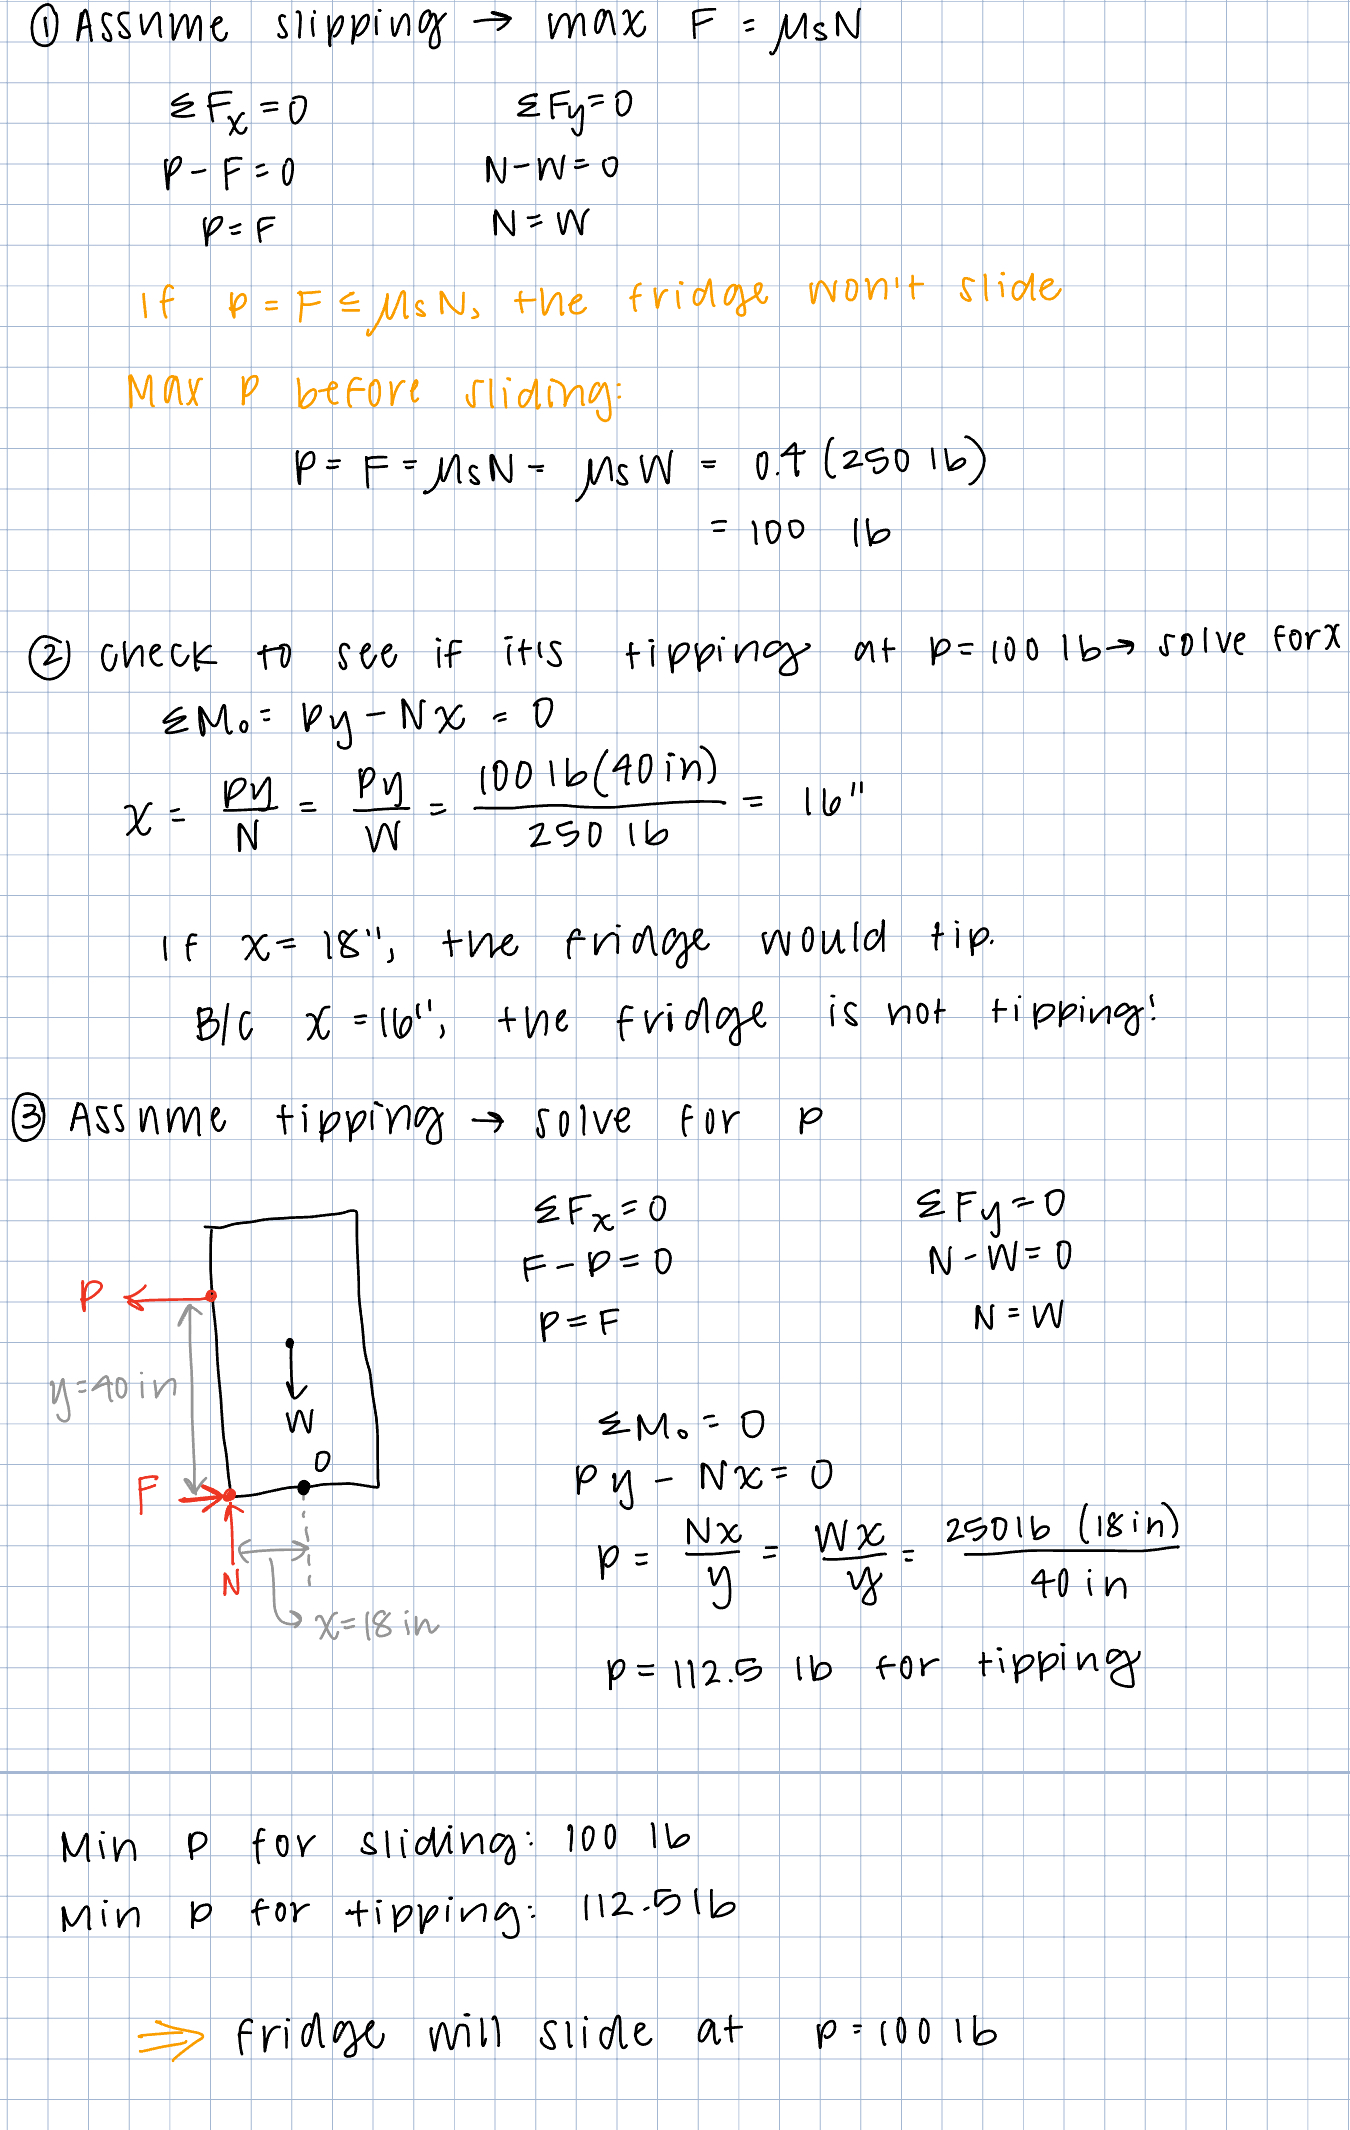 ① Assume slipping → max F = μsN
ΣFx = 0 ΣFy = 0
P - F = 0 N - W = 0
P = F N = W
If P = F ≤ μsN, the fridge won't slide
Max P before sliding:
P = F = μsN = μsW = 0.4 (250 lb)
= 100 lb
② Check to see if it's tipping at P = 100 lb → solve for x
ΣMo = Py - Nx = 0
x = Py/N = Py/W = 100 lb(40 in)/250 lb = 16"
If x = 18", the fridge would tip.
B/C x = 16", the fridge is not tipping!
③ Assume tipping → solve for P
ΣFx = 0 ΣFy = 0
F - P = 0 N - W = 0
P = F N = W
P
y = 40 in
W
O
F
N
x = 18 in
ΣMo = 0
Py - Nx = 0
P = Nx/y = Wx/y = 250 lb (18 in)/40 in
P = 112.5 lb for tipping
Min P for sliding: 100 lb
Min P for tipping: 112.5 lb
⇒ fridge will slide at P = 100 lb